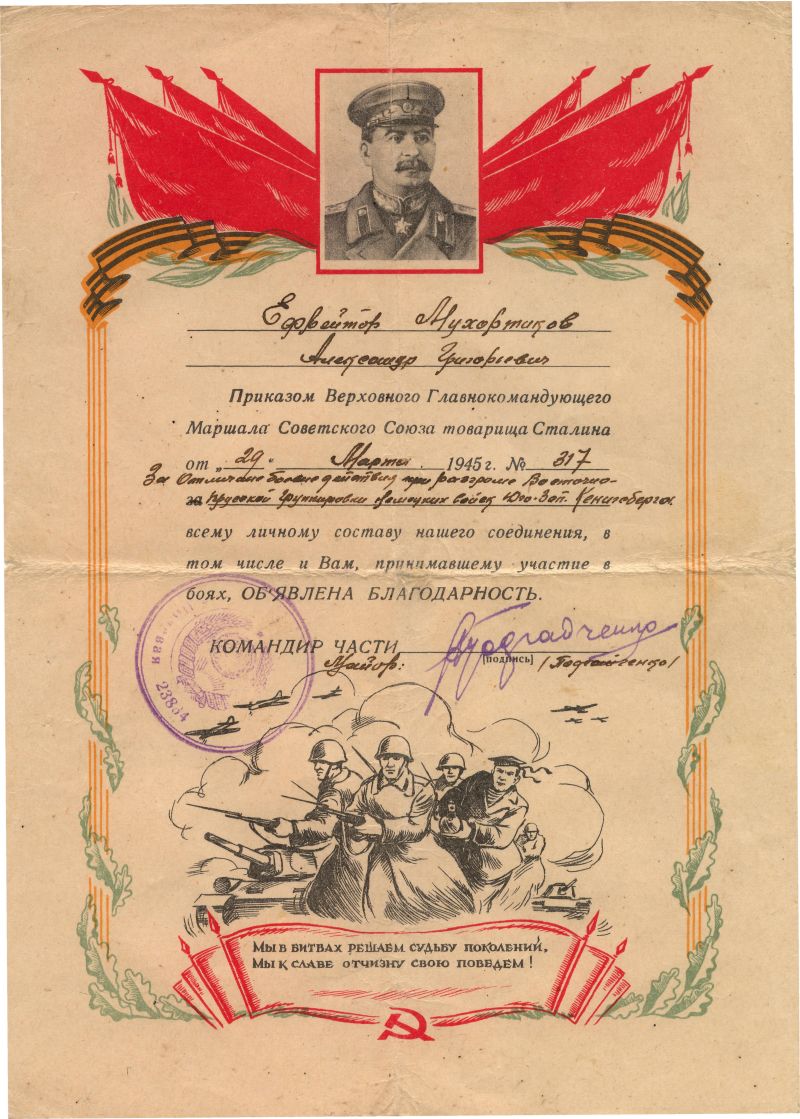 Ефрейтор Мухортиков
Александр Григорьевич
Приказом Верховного Главнокомандующего
Маршала Советского Союза товарища Сталина
от „ 29 " Марта 1945 г. № 317
За Отличные боевые действия при разгроме Восточно-
за Прусской группировки немецких войск Юго-Зап. Кенигсберга.
всему личному составу нашего соединения, в
том числе и Вам, принимавшему участие в
боях, ОБ'ЯВЛЕНА БЛАГОДАРНОСТЬ.
КОМАНДИР ЧАСТИ
Майор: [подпись]
23834
Мы в битвах решаем судьбу поколений,
Мы к славе отчизну свою поведем!